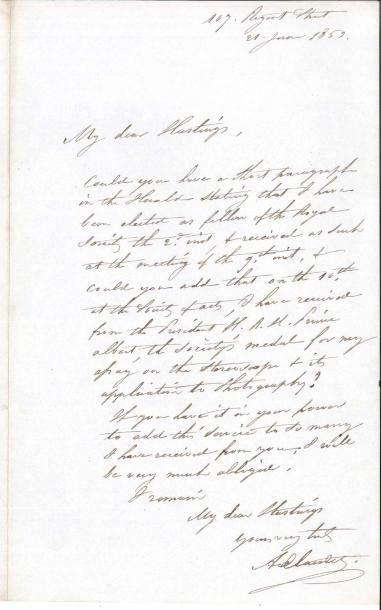 107. Regent Street
21 June 1853.
My dear Hastings,
Could you have a short paragraph
in the Herald stating that I have
been elected as fellow of the Royal
Society the 2d. inst, & received as such
at the meeting of the 9th inst, &
could you add that on the 10th
at the Society of arts, I have received
from the President H. R. H. Prince
albert the Society's medal for my
essay on the Stereoscope & its
application to Photography?
If you have it in your power
to add this service to so many
I have received from you, I will
be very much obliged.
I remain
My dear Hastings
yours very truly
A. Claudet.